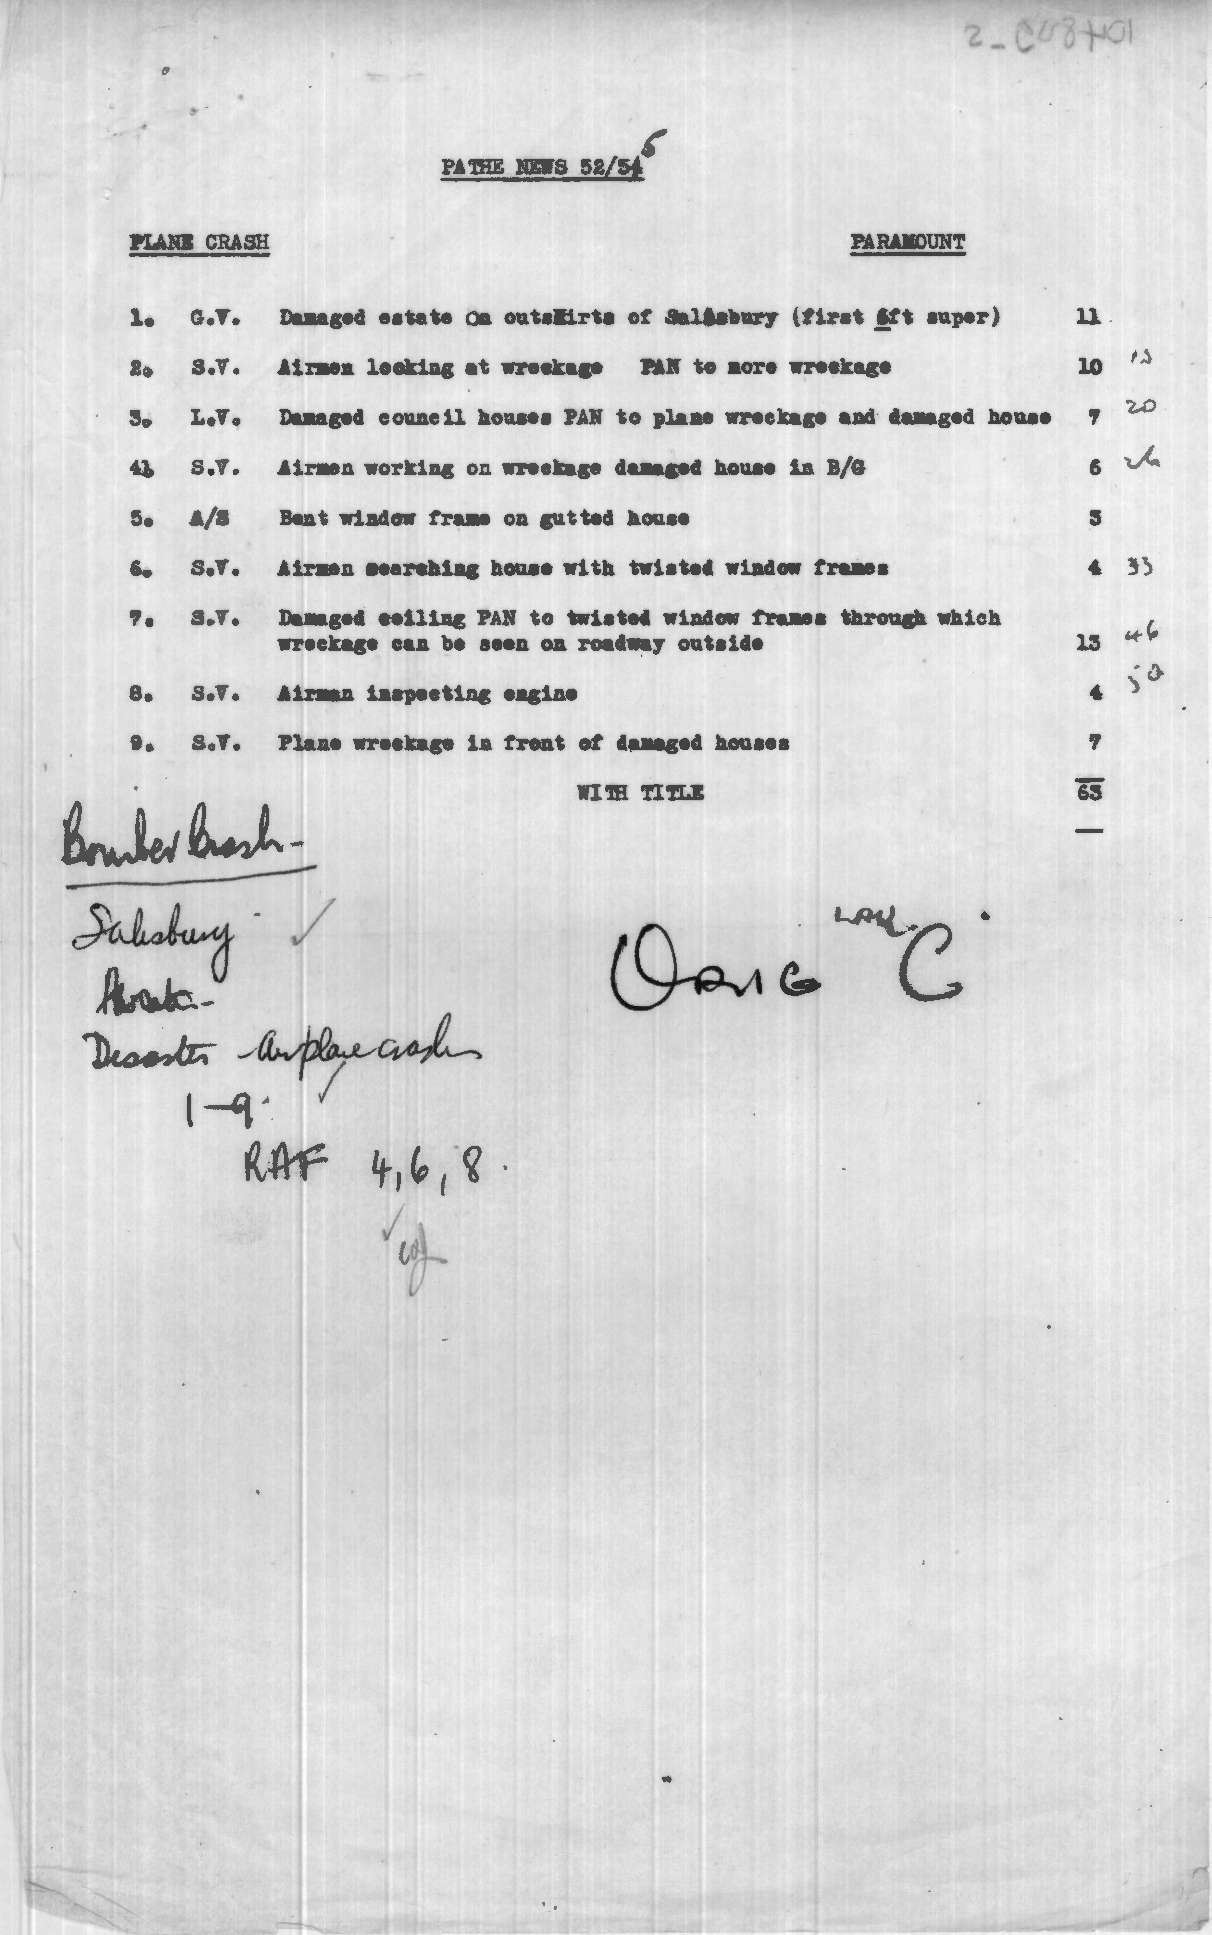 PATHE NEWS 52/54 5
PLANE CRASH PARAMOUNT
1. G.V. Damaged estate on outskirts of Salisbury (first 6ft super) 11
2. S.V. Airmen looking at wreckage PAN to more wreckage 10 13
3. L.V. Damaged council houses PAN to plane wreckage and damaged house 7 20
4. S.V. Airmen working on wreckage damaged house in B/G 6 26
5. A/S Bent window frame on gutted house 3
6. S.V. Airmen searching house with twisted window frames 4 33
7. S.V. Damaged ceiling PAN to twisted window frames through which
wreckage can be seen on roadway outside 13 46
8. S.V. Airman inspecting engine 4 50
9. S.V. Plane wreckage in front of damaged houses 7
WITH TITLE 63
Bomber Crash -
Salisbury
ORIG C
Disaster - Airplane crash
1-9.
RAF 4, 6, 8.